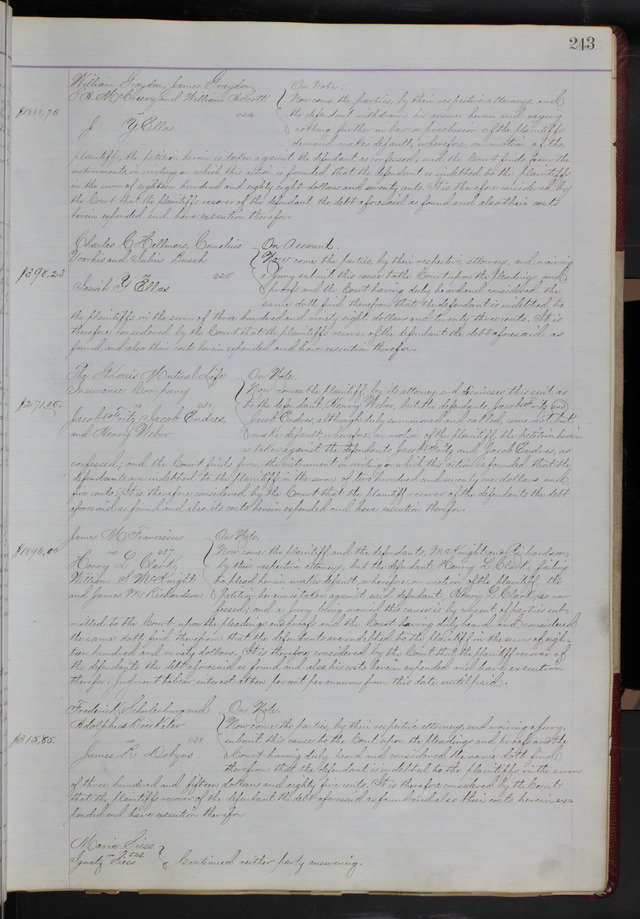 243
William Graydon, James Graydon, On Note.
J. H. McCreery and William Now come the parties, by their respective attorneys, and
$1888,70 the defendant withdraws his answer herein and saying
J Y Ellas nothing further in bar or preclusion of the plaintiff's
demand makes default; wherefore, on motion of the
plaintiffs, the petition herein is taken against the defendant as confessed, and the Court finds from the
instruments in writing on which this action is founded that the defendant is indebted to the plaintiffs
in the sum of eighteen hundred and eighty eight dollars and seventy cents. It is therefore considered by
the Court that the plaintiffs recover of the defendant the debt aforesaid as found and also their costs
herein expended and have execution therefor.
Charles G. Hellmers, Cornelius On Account.
Voorhes and Julius Busch Now come the parties, by their respective attorneys, and waiving
$398,23 vs 225 a jury submit this cause to the Court upon the pleadings and
Josiah Y Ellas proofs and the Court having duly heard and considered the
same doth find therefrom that the defendant is indebted to
the plaintiffs in the sum of three hundred and ninety eight dollars and twenty three cents. It is
therefore considered by the Court that the plaintiffs recover of the defendant the debt aforesaid as
found and also their costs herein expended and have execution therefor.
The St Louis Mutual Life On Note.
Insurance Company Now comes the plaintiff, by its attorney and dismisses this suit as
$271,05. vs 231 to the defendant, Henry Weber, but the defendants, Jacob Fritz and
Jacob Fritz, Jacob Endres, Jacob Endres, although duly summoned and called, come not but
and Henry Weber make default; wherefore on motion of the plaintiff, the petition herein
is taken against the defendants Jacob Fritz and Jacob Endres, as
confessed; and the Court finds from the instrument in writing on which this action is founded that the
defendants are indebted to the plaintiff in the sum of two hundred and seventy one dollars and
five cents. It is therefore considered by the Court that the plaintiff recover of the defendants the debt
aforesaid as found and also its costs herein expended and have execution therefor.
James M Franciscus On Note.
$1890,00 vs 237 Now come the plaintiff and the defendants, McKnight and Richardson,
Henry L Clark, by their respective attorneys, but the defendant Henry L Clark, failing
William S McKnight to plead herein makes default; wherefore, on motion of the plaintiff, the
and James M Richardson Petition herein is taken against said defendant, Henry L Clark, as con-
fessed; and a jury being waived this cause is by consent of parties sub-
mitted to the Court upon the pleadings and proofs and the Court having duly heard and considered
the same doth find therefrom that the defendants are indebted to the plaintiff in the sum of eigh-
teen hundred and ninety dollars. It is therefore considered by the Court that the plaintiff recover of
the defendants the debt aforesaid as found and also his costs herein expended and have execution
therefor. Judgment to bear interest at ten per cent per annum from this date until paid.
Frederick Schulenburg and On Note.
Adolphus Boeckeler Now come the parties, by their respective attorneys, and waiving a jury,
$315,85. vs 238 submit this cause to the Court upon the pleadings and proofs and the
James R Dobyns Court having duly heard and considered the same doth find
therefrom that the defendant is indebted to the plaintiffs in the sum
of three hundred and fifteen dollars and eighty five cents. It is therefore considered by the Court
that the plaintiffs recover of the defendant the debt aforesaid as found and also their costs herein ex-
pended and have execution therefor.
Maria Siess
Ignatz Siess Continued neither party answering.